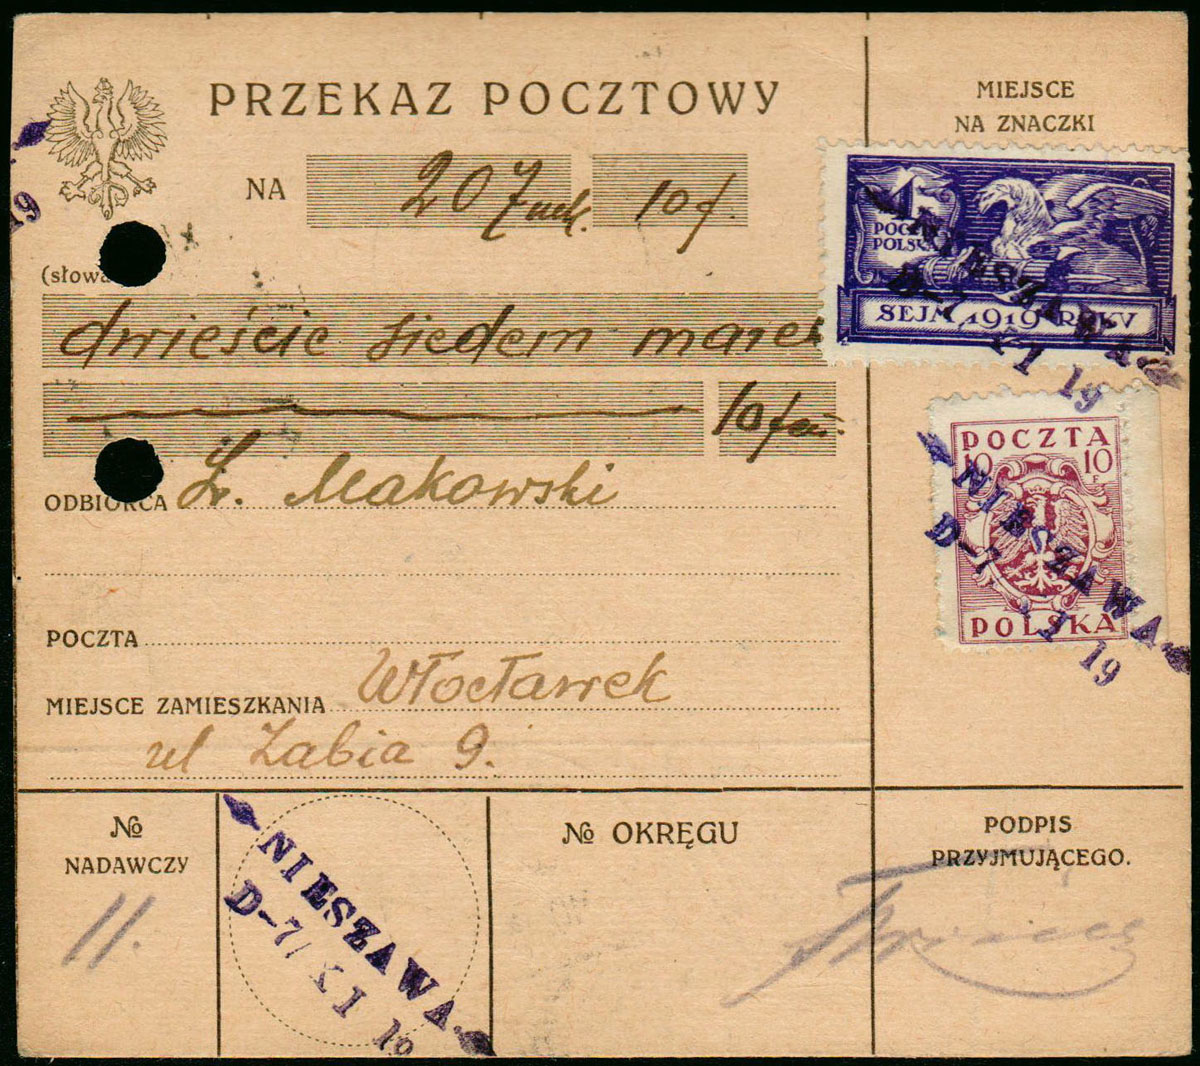 PRZEKAZ POCZTOWY
MIEJSCE
NA ZNACZKI
NA 207 mk. 10 f.
19
1
POCZTA
POLSKA
SEJM 1919 ROKU
NIESZAWA
D-7/XI 19
(słowa
dwieście siedem marek
10 fen.
ODBIORCA Makowski
POCZTA
10 10
F
POLSKA
NIESZAWA
D-7 XI 19
POCZTA
MIEJSCE ZAMIESZKANIA Włocławek
ul Żabia 9.
№
NADAWCZY
11.
NIESZAWA
D-7/XI 19
№ OKRĘGU
PODPIS
PRZYJMUJĄCEGO.